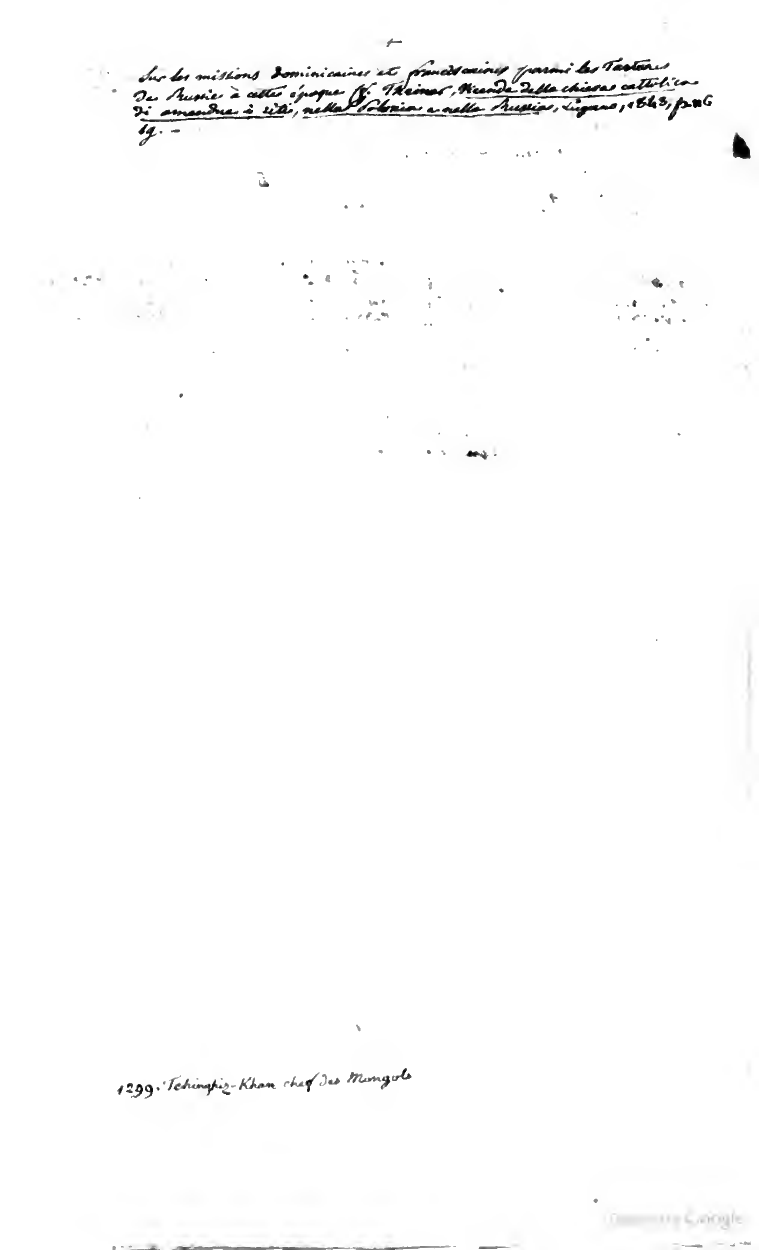 Sur les missions dominicaines et franciscaines parmi les Tartares
de Russie à cette époque V. Theiner, Vicende della chiesa cattolica
di amendue i riti, nella Polonia e nella Russia, Lugano, 1843, p.
sg. —
1299. Tchinghiz-Khan chef des Mongols
Google